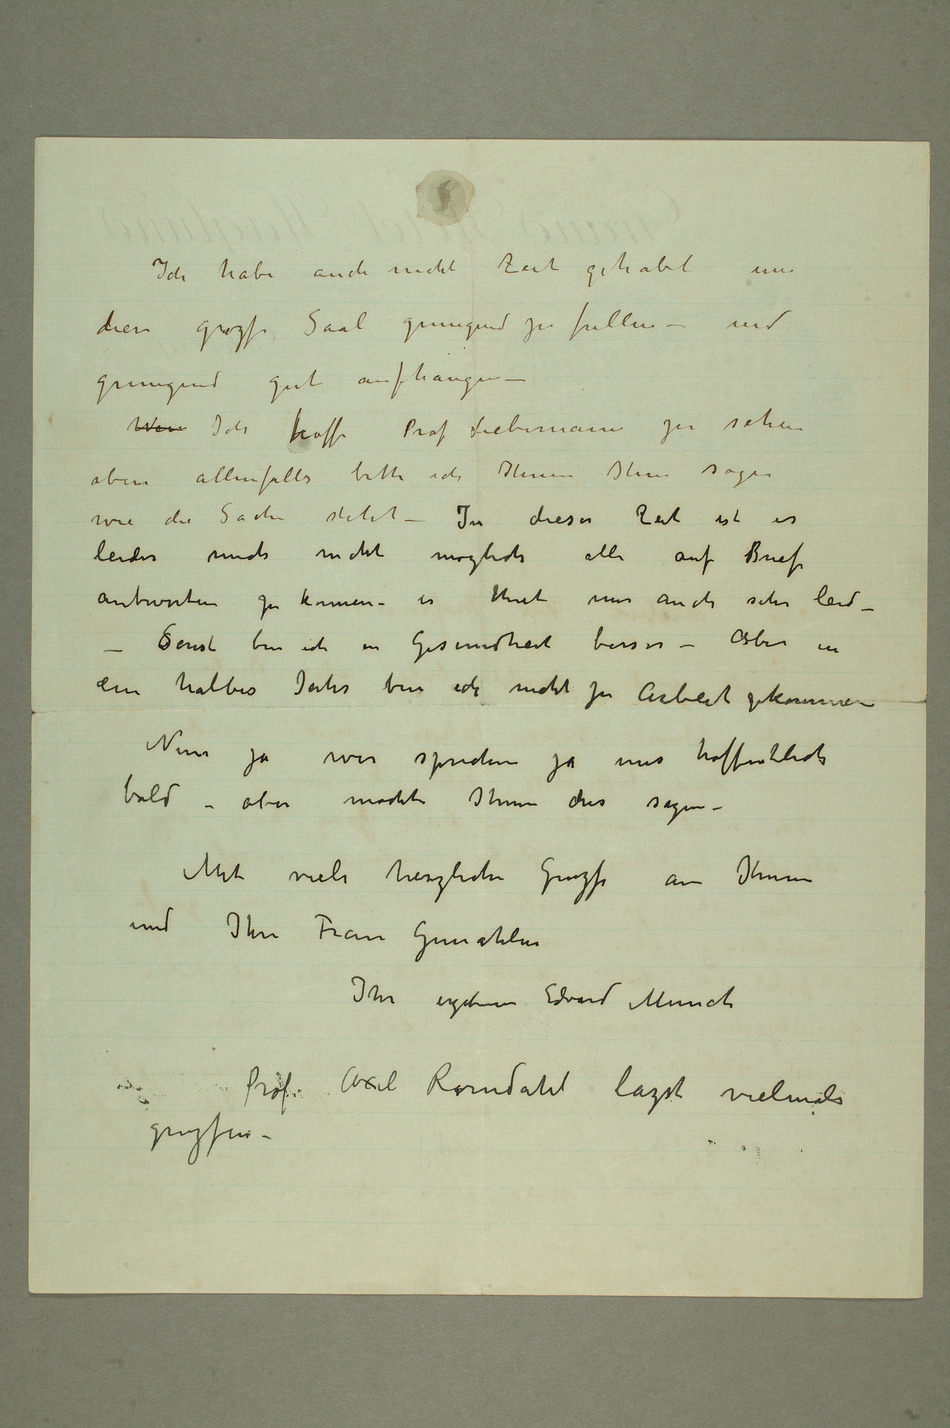 Ich habe auch nicht Zeit gehabt um
diese grozse Saal genugend zu fullen – und
genugend gut aufhangen –
Wen Ich hoffe Prof Liebermann zu sehen
aben allenfalls bitte ich Ihnen Ihm sagen
wie die Sache steht – In dieser Zeit ist es
leider mich nicht moglich alle auf Briefe
antworten zu konnen – es thut mir auch sehr leid –
– Sonst bin ich in Gesundheit besser – Aber in
ein halbes Jahr bin ich nicht zu Arbeit gekommen
Nun ja wir sprechen ja uns hoffentlich
bald – aber mochte Ihnen dies sagen –
Mit viele herzliche Gruzse an Ihnen
und Ihre Frau Gemahlin
Ihr ergebener Edvard Munch
Prof. Axel Romdahl lazst vielmals
gruzsen –